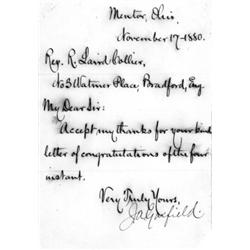 Mentor, Ohio.
November 17-1880.
Rev. R. Laird Collier,
No 3 Walmer Place, Bradford, Eng.
My Dear Sir:
Accept my thanks for your kind
letter of congratulations of the four
instant.
Very Truly Yours,
J A Garfield.